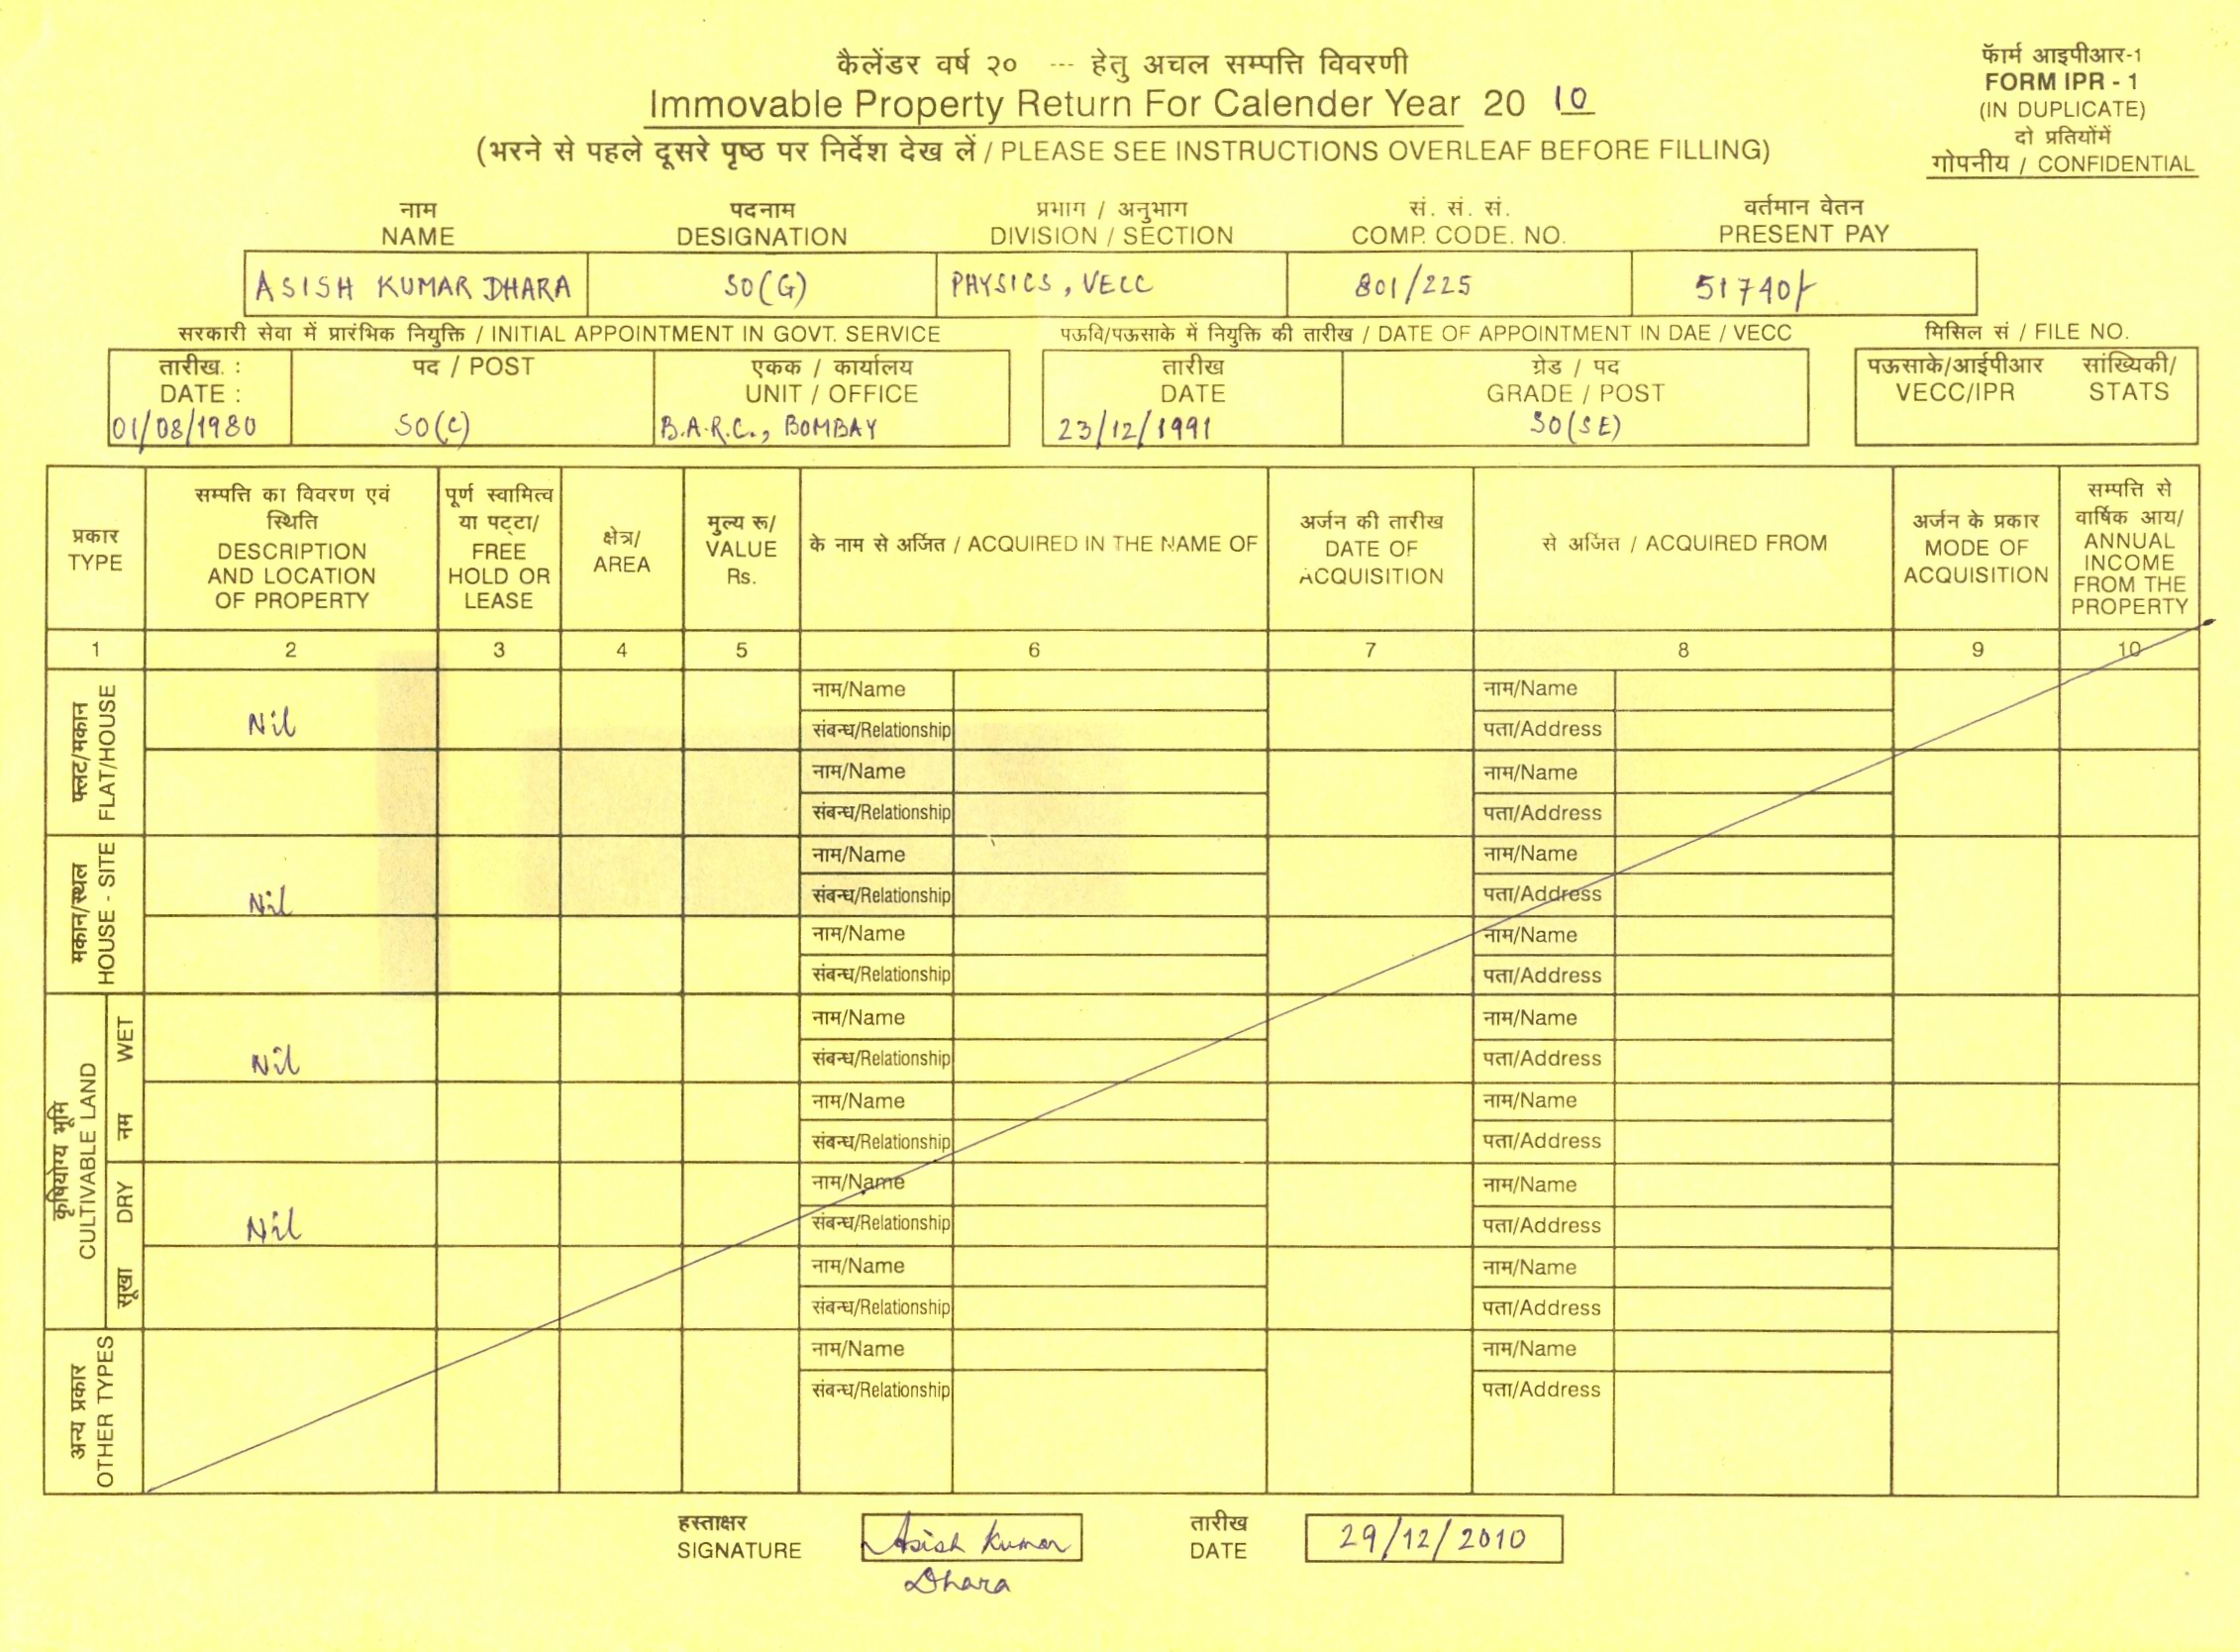 कैलेंडर वर्ष २० --- हेतु अचल सम्पत्ति विवरणी
Immovable Property Return For Calender Year 20 10
(भरने से पहले दूसरे पृष्ठ पर निर्देश देख लें / PLEASE SEE INSTRUCTIONS OVERLEAF BEFORE FILLING)
फॅार्म आइपीआर-1
FORM IPR - 1
(IN DUPLICATE)
दो प्रतियोंमें
गोपनीय / CONFIDENTIAL
नाम पदनाम प्रभाग / अनुभाग सं. सं. सं. वर्तमान वेतन
NAME DESIGNATION DIVISION / SECTION COMP. CODE. NO. PRESENT PAY
ASISH KUMAR DHARA SO(G) PHYSICS, VECC 801/225 51740/-
सरकारी सेवा में प्रारंभिक नियुक्ति / INITIAL APPOINTMENT IN GOVT. SERVICE पऊवि/पऊसाके में नियुक्ति की तारीख / DATE OF APPOINTMENT IN DAE / VECC मिसिल सं / FILE NO.
तारीख. : पद / POST एकक / कार्यालय तारीख ग्रेड / पद पऊसाके/आईपीआर सांख्यिकी/
DATE : UNIT / OFFICE DATE GRADE / POST VECC/IPR STATS
01/08/1980 SO(C) B.A.R.C., BOMBAY 23/12/1991 SO(SE)
प्रकार
TYPE
सम्पत्ति का विवरण एवं
स्थिति
DESCRIPTION
AND LOCATION
OF PROPERTY
पूर्ण स्वामित्व
या पट्टा/
FREE
HOLD OR
LEASE
क्षेत्र/
AREA
मुल्य रू/
VALUE
Rs.
के नाम से अर्जित / ACQUIRED IN THE NAME OF
अर्जन की तारीख
DATE OF
ACQUISITION
से अर्जित / ACQUIRED FROM
अर्जन के प्रकार
MODE OF
ACQUISITION
सम्पत्ति से
वार्षिक आय/
ANNUAL
INCOME
FROM THE
PROPERTY
1 2 3 4 5 6 7 8 9 10
फ्लट/मकान
FLAT/HOUSE
Nil
नाम/Name नाम/Name
संबन्ध/Relationship पता/Address
नाम/Name नाम/Name
संबन्ध/Relationship पता/Address
मकान/स्थल
HOUSE - SITE
Nil
नाम/Name नाम/Name
संबन्ध/Relationship पता/Address
नाम/Name नाम/Name
संबन्ध/Relationship पता/Address
कृषियोग्य भूमि
CULTIVABLE LAND
नम WET
Nil
नाम/Name नाम/Name
संबन्ध/Relationship पता/Address
नाम/Name नाम/Name
संबन्ध/Relationship पता/Address
सूखा DRY
Nil
नाम/Name नाम/Name
संबन्ध/Relationship पता/Address
नाम/Name नाम/Name
संबन्ध/Relationship पता/Address
अन्य प्रकार
OTHER TYPES
नाम/Name नाम/Name
संबन्ध/Relationship पता/Address
हस्ताक्षर तारीख
SIGNATURE Asish Kumar DATE 29/12/2010
Dhara